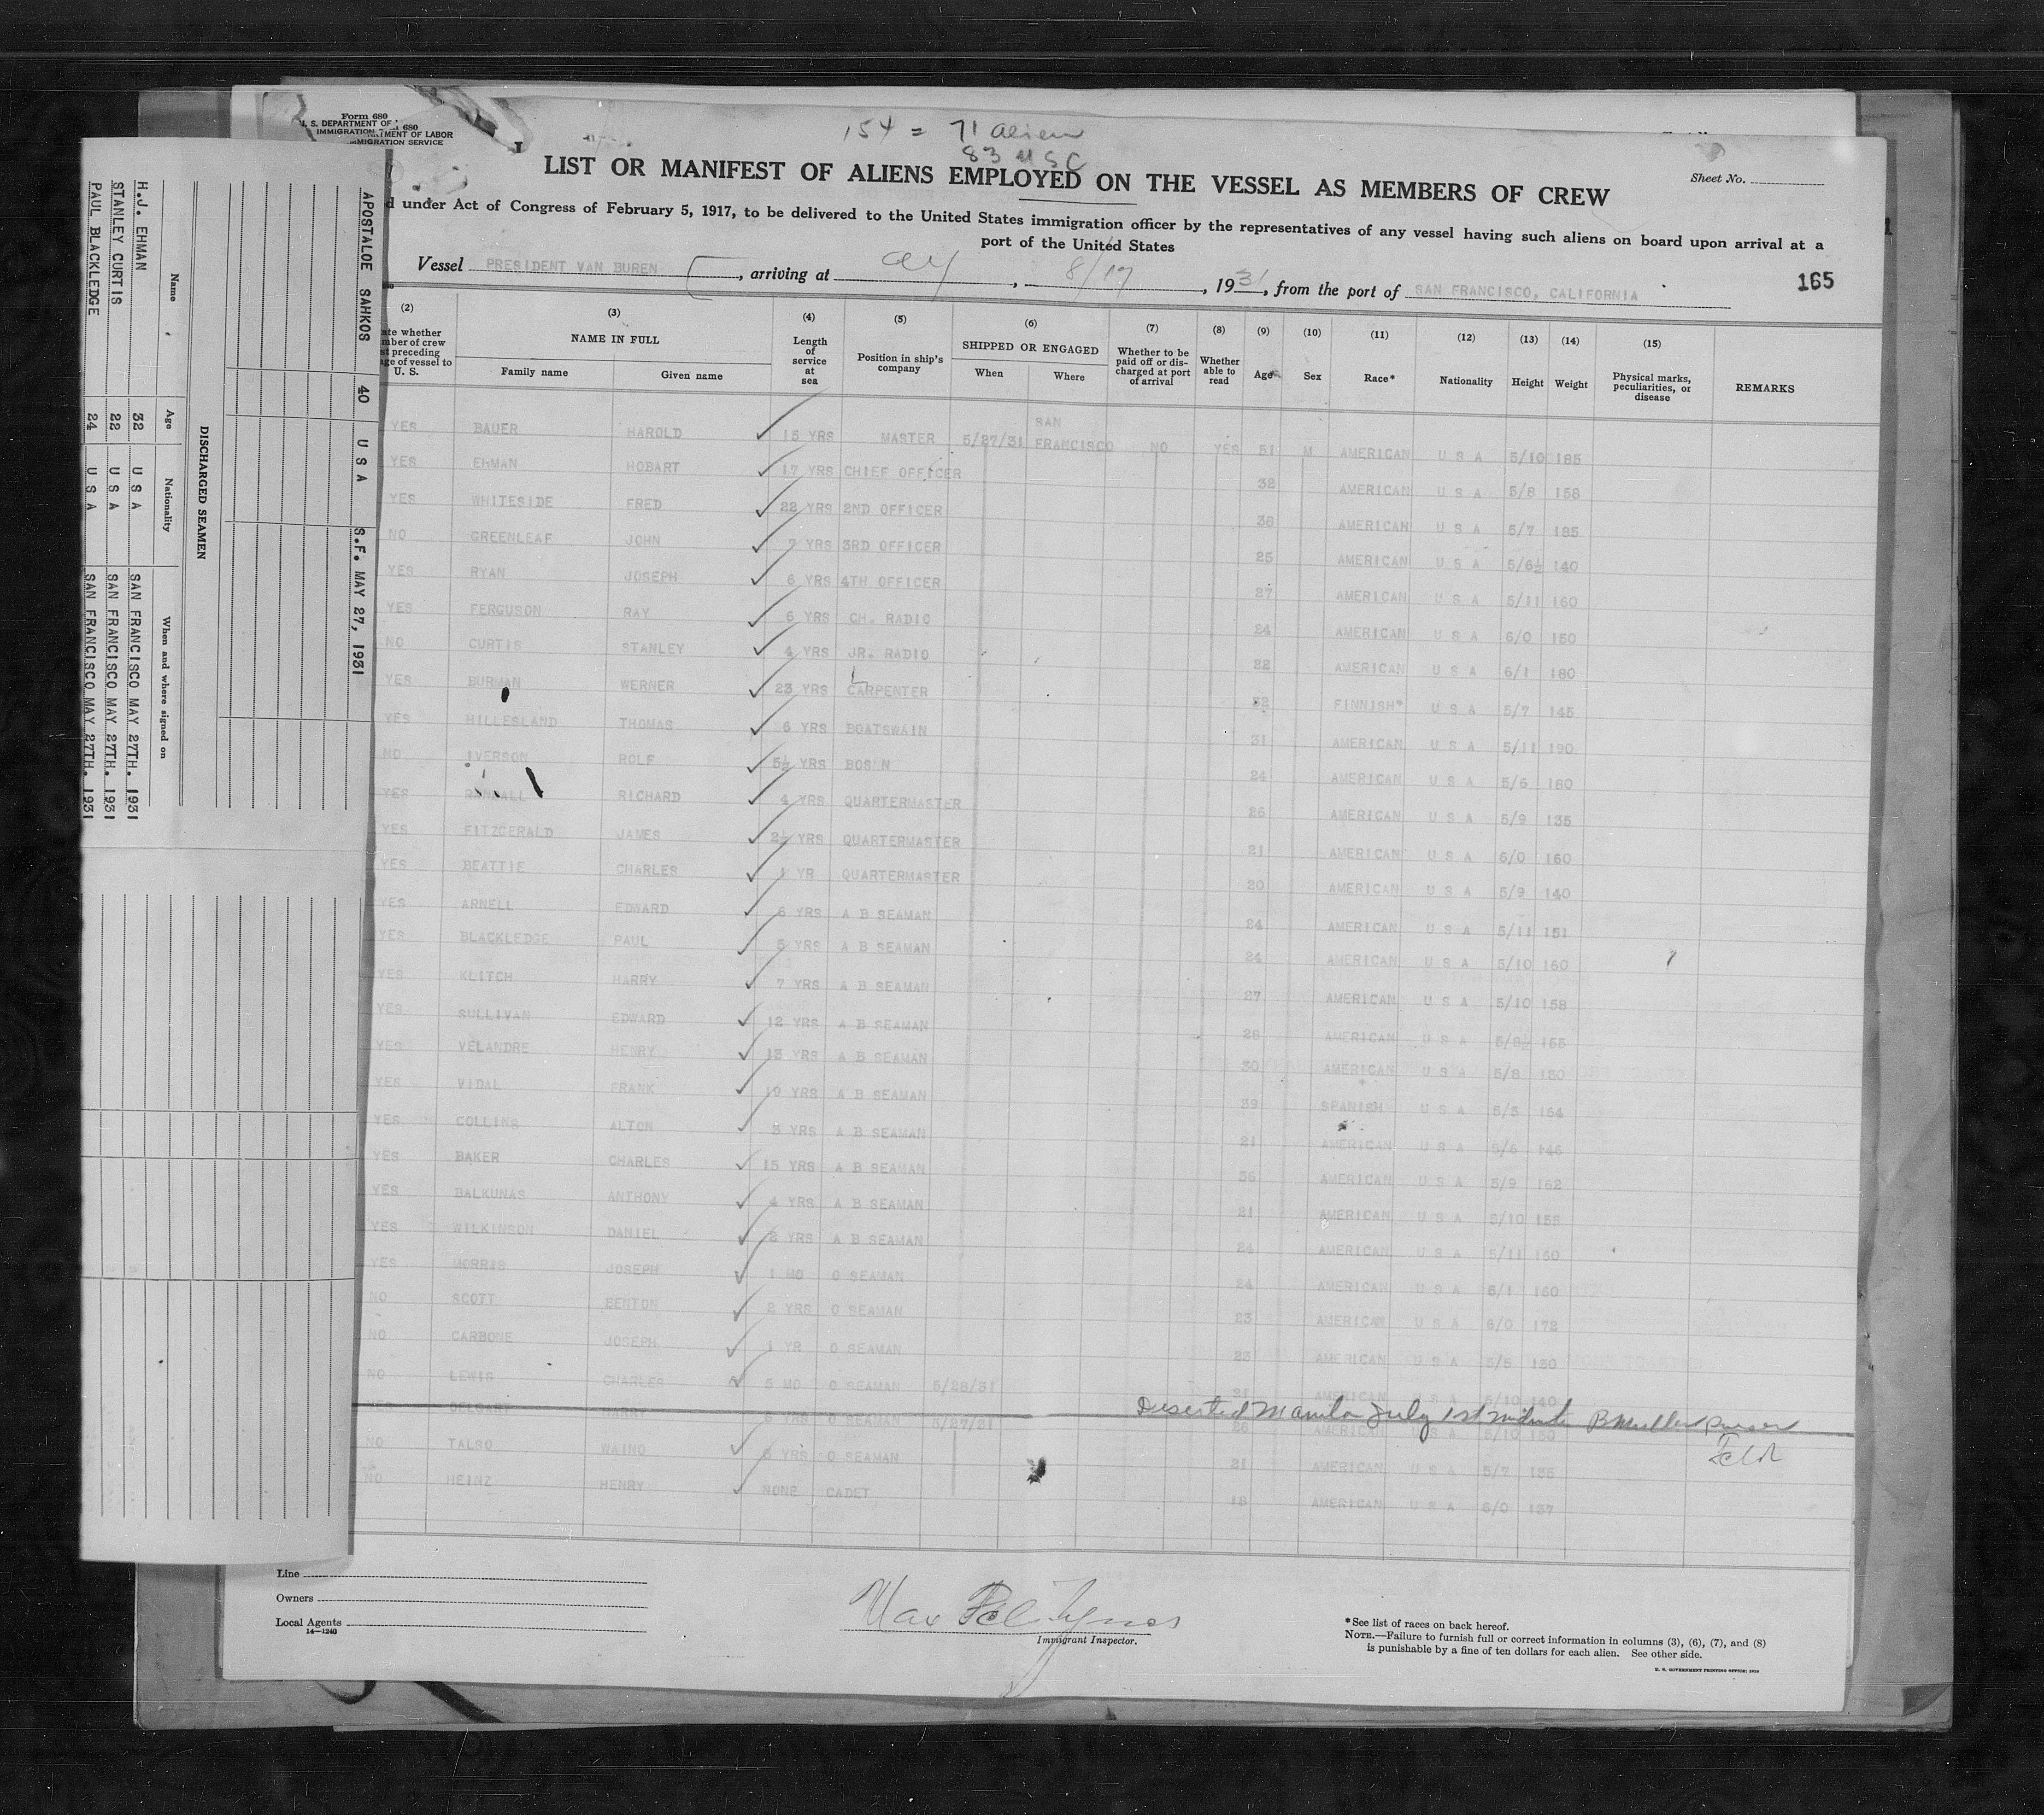 Form 680
U. S. DEPARTMENT OF
IMMIGRATION
680
TMENT OF LABOR
MIGRATION SERVICE
154 = 71 alien
83 USC
LIST OR MANIFEST OF ALIENS EMPLOYED ON THE VESSEL AS MEMBERS OF CREW
Sheet No.
d under Act of Congress of February 5, 1917, to be delivered to the United States immigration officer by the representatives of any vessel having such aliens on board upon arrival at a
port of the United States
Vessel PRESIDENT VAN BUREN, arriving at , 8/17, 1931, from the port of SAN FRANCISCO, CALIFORNIA
165
(2) (3) (4) (5) (6) (7) (8) (9) (10) (11) (12) (13) (14) (15)
ate whether mber of crew t preceding age of vessel to U. S. NAME IN FULL Family name Given name Length of service at sea Position in ship's company SHIPPED OR ENGAGED When Where Whether to be paid off or discharged at port of arrival Whether able to read Age Sex Race* Nationality Height Weight Physical marks, peculiarities, or disease REMARKS
YES BAUER HAROLD 15 YRS MASTER 5/27/31 SAN FRANCISCO NO YES 51 M AMERICAN U S A 5/10 185
YES EHMAN HOBART 17 YRS CHIEF OFFICER 32 AMERICAN U S A 5/8 158
YES WHITESIDE FRED 22 YRS 2ND OFFICER 38 AMERICAN U S A 5/7 185
NO GREENLEAF JOHN 7 YRS 3RD OFFICER 25 AMERICAN U S A 5/6½ 140
YES RYAN JOSEPH 6 YRS 4TH OFFICER 27 AMERICAN U S A 5/11 160
YES FERGUSON RAY 6 YRS CH. RADIO 24 AMERICAN U S A 6/0 150
NO CURTIS STANLEY 4 YRS JR. RADIO 22 AMERICAN U S A 6/1 180
YES BURMAN WERNER 23 YRS CARPENTER FINNISH* U S A 5/7 145
YES HILLESLAND THOMAS 6 YRS BOATSWAIN 31 AMERICAN U S A 5/11 190
NO IVERSON ROLF 5½ YRS BOS'N 24 AMERICAN U S A 5/6 180
YES RANDALL RICHARD 4 YRS QUARTERMASTER 26 AMERICAN U S A 5/9 135
YES FITZGERALD JAMES 2½ YRS QUARTERMASTER 21 AMERICAN U S A 6/0 160
YES BEATTIE CHARLES 1 YR QUARTERMASTER 20 AMERICAN U S A 5/9 140
YES ARNELL EDWARD 6 YRS A B SEAMAN 24 AMERICAN U S A 5/11 151
YES BLACKLEDGE PAUL 5 YRS A B SEAMAN 24 AMERICAN U S A 5/10 160
YES KLITCH HARRY 7 YRS A B SEAMAN 27 AMERICAN U S A 5/10 158
YES SULLIVAN EDWARD 12 YRS A B SEAMAN 28 AMERICAN U S A 5/8½ 155
YES VELANDRE HENRY 13 YRS A B SEAMAN 30 AMERICAN U S A 5/8 130
YES VIDAL FRANK 19 YRS A B SEAMAN 39 SPANISH U S A 5/5 164
YES COLLINS ALTON 3 YRS A B SEAMAN 21 AMERICAN U S A 5/6 146
YES BAKER CHARLES 15 YRS A B SEAMAN 36 AMERICAN U S A 5/9 162
YES BALKUNAS ANTHONY 4 YRS A B SEAMAN 21 AMERICAN U S A 5/10 155
YES WILKINSON DANIEL 6 YRS A B SEAMAN 24 AMERICAN U S A 5/11 160
YES MORRIS JOSEPH 1 MO O SEAMAN 24 AMERICAN U S A 6/1 160
NO SCOTT BENTON 2 YRS O SEAMAN 23 AMERICAN U S A 6/0 172
NO CARBONE JOSEPH 1 YR O SEAMAN 23 AMERICAN U S A 5/5 130
NO LEWIS CHARLES 5 MO O SEAMAN 5/28/31 21 AMERICAN U S A 5/10 140
Deserted Manila July 1st B Muller purser
HARRY 6 YRS O SEAMAN 5/27/31 26 AMERICAN U S A 5/10 150
NO TALSO WAINO 6 YRS O SEAMAN 21 AMERICAN U S A 5/7 135
NO HEINZ HENRY NONE CADET 18 AMERICAN U S A 6/0 137
Line
Owners
Local Agents
14—1240
Max
Immigrant Inspector.
*See list of races on back hereof.
NOTE.—Failure to furnish full or correct information in columns (3), (6), (7), and (8)
is punishable by a fine of ten dollars for each alien. See other side.
U. S. GOVERNMENT PRINTING OFFICE: 1930
APOSTALOE SAHKOS 40 U S A S.F. MAY 27, 1931
DISCHARGED SEAMEN
Name Age Nationality When and where signed on
H.J. EHMAN 32 U S A SAN FRANCISCO MAY 27TH. 1931
STANLEY CURTIS 22 U S A SAN FRANCISCO MAY 27TH. 1931
PAUL BLACKLEDGE 24 U S A SAN FRANCISCO MAY 27TH. 1931